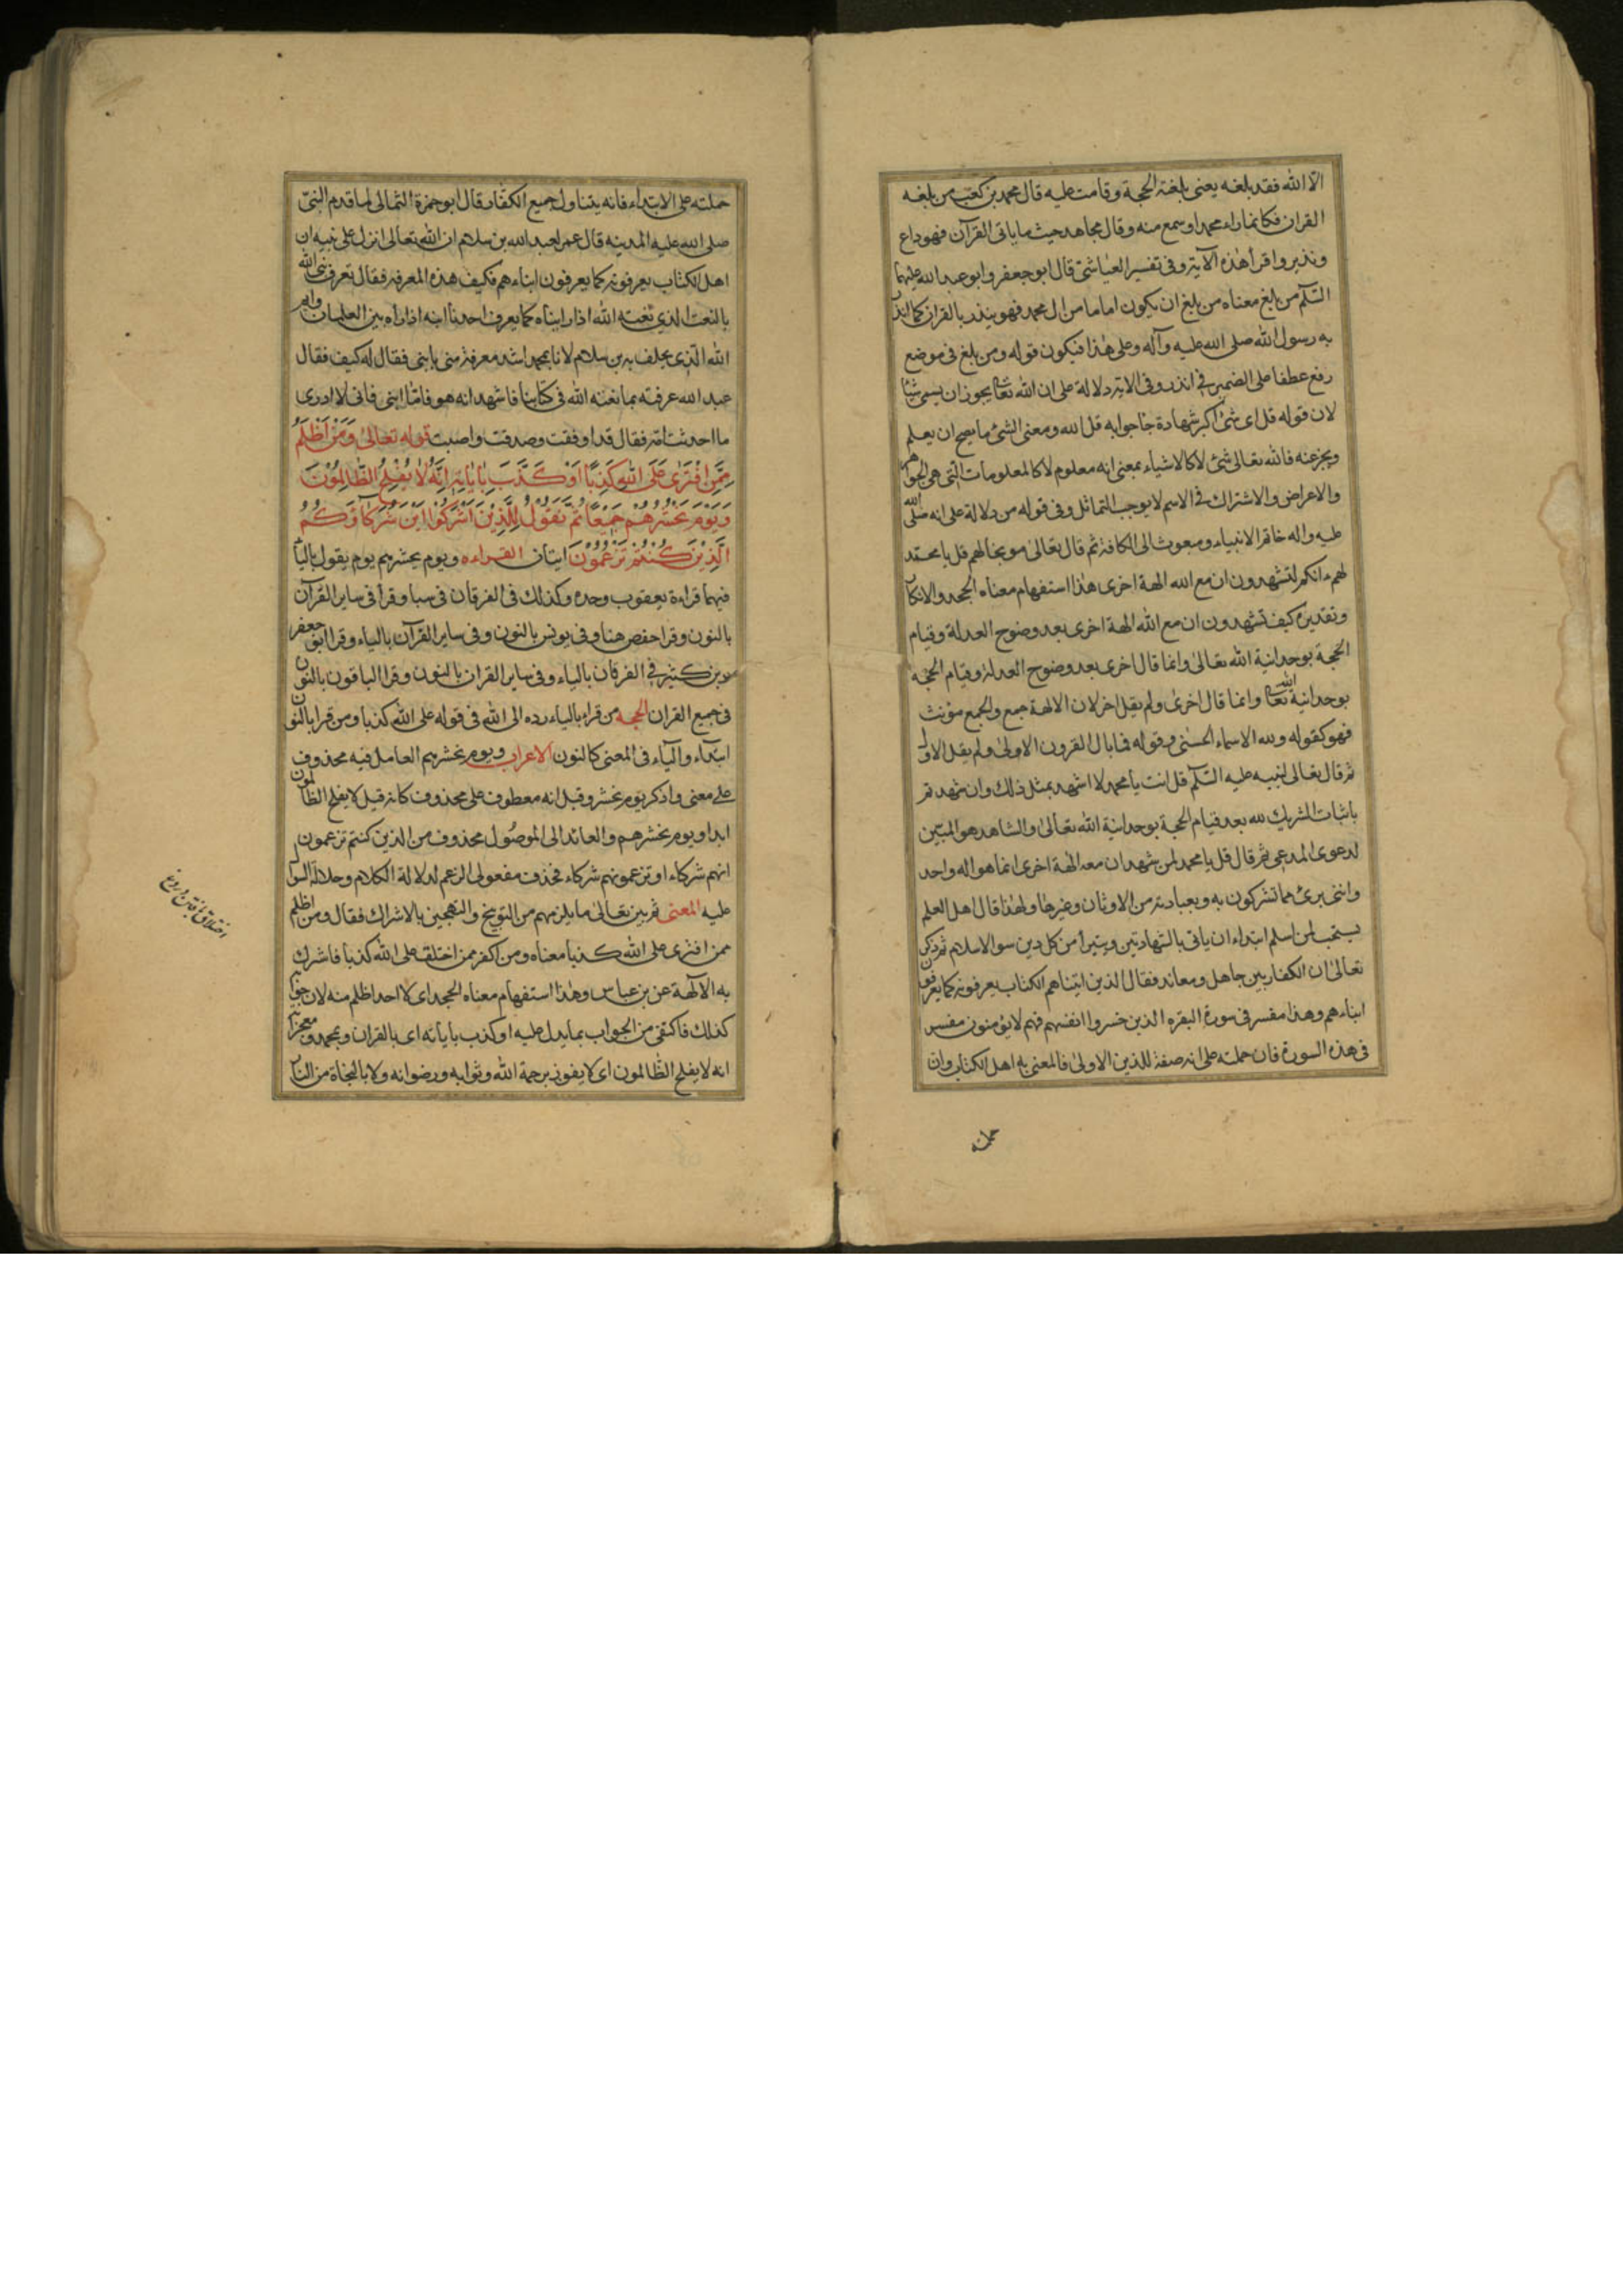 الا الله فقد بلغه يعنى بلغته الحجة و قامت عليه قال محمد بن كعب من بلغه
القران فكانما راء محمدا و سمع منه و قال مجاهد حيث ما ياتى القرآن فهو داع
و نذير و اقرأ هذه الآية و فى تفسير العياشى قال ابو جعفر و ابو عبد الله عليهما
السلم من بلغ معناه من بلغ ان يكون اماما من ال محمد فهو ينذر بالقران كما انذر
به رسول الله صلى الله عليه و آله و على هذا فيكون قوله و من بلغ فى موضع
رفع عطفا على الضمير فى انذر و فى الاية دلالة على ان الله تعا يجوز ان يسمى شيئا
لان قوله قل اى شئ اكبر شهادة جا جوابه قل الله و معنى الشئ ما يصح ان يعلم
و يخبر عنه فالله تعالى شئ لا كالاشياء بمعنى انه معلوم لا كالمعلومات التى هى الجواهر
و الاعراض و الاشتراك فى الاسم لا يوجب التماثل و فى قوله من دلالة على انه صلى الله
عليه و اله خاتم الانبياء و مبعوث الى الكافة ثم قال تعالى موبخا لهم قل يا محمد
لهم ءانكم لتشهدون ان مع الله الهة اخرى هذا استفهام معناه الجحد و الانكار
و تقديره كيف تشهدون ان مع الله الهة اخرى بعد وضوح العدلة و قيام
الحجة بوحدانية الله تعالى و انما قال اخرى بعد وضوح العدلة و قيام الحجة
بوحدانية الله تعا و انما قال اخرى و لم يقل اخر لان الالهة جمع و الجمع مؤنث
فهو كقوله و لله الاسماء الحسنى و قوله فما بال القرون الاولى و لم يقل الاول
ثم قال تعالى لنبيه عليه السلم قل انت يا محمد لا اشهد بمثل ذلك و ان شهد تم
باثبات الشريك لله بعد قيام الحجة بوحدانية الله تعالى و الشاهد هو المبين
لدعوى المدعى ثم قال قل يا محمد لمن شهد ان معه الهة اخرى انما هو اله واحد
و اننى برئ مما تشركون به و بعبادته من الاوثان و غيرها و لهذا قال اهل العلم
يستحب لمن اسلم ابتداء ان ياتى بالشهادتين و يتبرأ من كل دين سوا الاسلام ثم ذكر
تعالى ان الكفار بين جاهل و معاند فقال الذين اتيناهم الكتاب يعرفونه كما يعرفون
ابناءهم و هذا مفسر فى سورة البقره الذين خسروا انفسهم فهم لا يؤمنون مفسر
فى هذه السورة فان حملته على انه صفة للذين الاولى فالمعنى به اهل الكتاب و ان
حملته
حملته على الابتداء فانه يتناول جميع الكفار و قال ابو حمزة الثمالى لما قدم النبى
صلى الله عليه المدينه قال عمر لعبد الله بن سلام ان الله تعالى انزل على نبيه ان
اهل الكتاب يعرفونه كما يعرفون ابناءهم فكيف هذه المعرفه فقال نعرف نبى الله
بالنعت الذى نعته الله اذا رايناه كما يعرف احدنا ابنه اذا راه بين الغلمان و ايم
الله الذى يحلف به بن سلام لانا بمحمد اشد معرفة منى بابنى فقال له كيف فقال
عبد الله عرفته بما نعته الله فى كتابنا فاشهد انه هو فاما ابنى فانى لا ادرى
ما احدثت امه فقال قد اوفقت و صدقت و اصبت قوله تعالى وَمَنْ اَظْلَمُ
مِمَّنِ افْتَرٰى عَلَى اللهِ كَذِبًا اَوْ كَذَّبَ بِاٰيَاتِهِ اِنَّهُ لَا يُفْلِحُ الظَّالِمُوْنَ
وَيَوْمَ نَحْشُرُهُمْ جَمِيْعًا ثُمَّ نَقُوْلُ لِلَّذِيْنَ اَشْرَكُوْا اَيْنَ شُرَكَاؤُكُمُ
الَّذِيْنَ كُنْتُمْ تَزْعُمُوْنَ ايتان القراءه و يوم يحشرهم يوم يقول بالياء
فيهما قراءة يعقوب وحده و كذلك فى الفرقان فى سبا و قرأ فى ساير القرآن
بالنون و قرا حفص هنا و فى يونس بالنون و فى ساير القرآن بالياء و قرا ابو جعفر
و بن كثير فى الفرقان بالياء و فى ساير القران بالنون و قرا الباقون بالنون
فى جميع القران الحجه من قراء بالياء رده الى الله فى قوله على الله كذبا و من قرا بالنون
ابتداء و الياء فى المعنى كالنون الاعراب و يوم نحشرهم العامل فيه محذوف
على معنى و اذكر يوم نحشر و قيل انه معطوف على محذوف كانه قيل لا يفلح الظالمون
ابدا و يوم نحشرهم و العائد الى الموصول محذوف من الذين كنتم تزعمون
انهم شركاء او تزعمونهم شركاء فحذف مفعولى الزعم لدلالة الكلام و حلالة السوال
عليه المعنى ثم بين تعالى ما يلزمهم من التوبيخ و التهجين بالاشراك فقال و من اظلم
ممن افترى على الله كذبا معناه و من اكفر ممن اختلق على الله كذبا فاشرك
به الالهة عن بن عباس و هذا استفهام معناه الجحد اى لا احد اظلم منه لان جوابه
كذلك فاكتفى من الجواب بما يدل عليه او كذب باياته اى بالقران و بمحمد و معجزاته
انه لا يفلح الظالمون اى لا يفوز برحمة الله و ثوابه و رضوانه و لا بالنجاة من النار